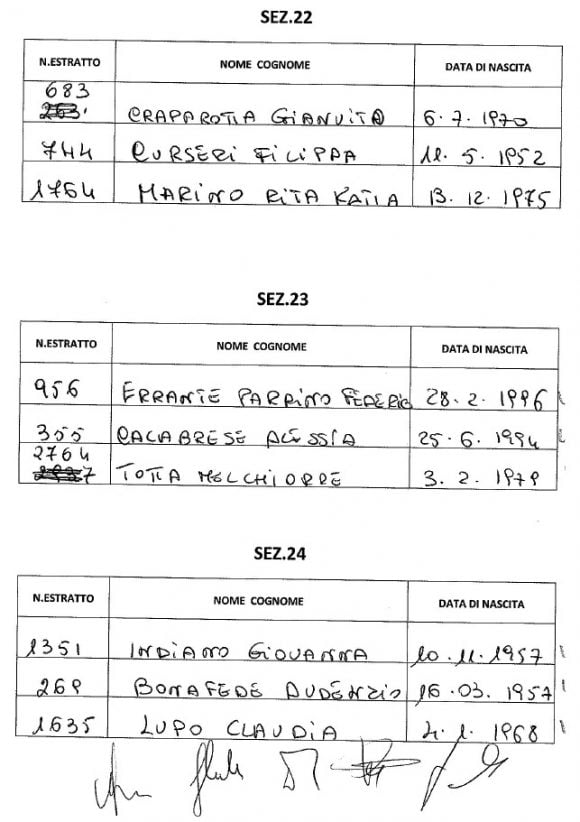 SEZ.22
N.ESTRATTO NOME COGNOME DATA DI NASCITA
683
CRAPAROTTA GIANVITO 6.7.1970
744 CURSERI FILIPPA 11.5.1952
1764 MARINO RITA KATIA 13.12.1975
SEZ.23
N.ESTRATTO NOME COGNOME DATA DI NASCITA
956 ERRANTE PARRINO FEDERIC 28.2.1996
355 CALABRESE ALESSIA 25.6.1994
2764
TOTTA MELCHIORRE 3.2.1979
SEZ.24
N.ESTRATTO NOME COGNOME DATA DI NASCITA
1351 INDIANO GIOVANNA 10.11.1957
269 BONAFEDE AUDENZIO 16.03.1957
1635 LUPO CLAUDIA 4.1.1968